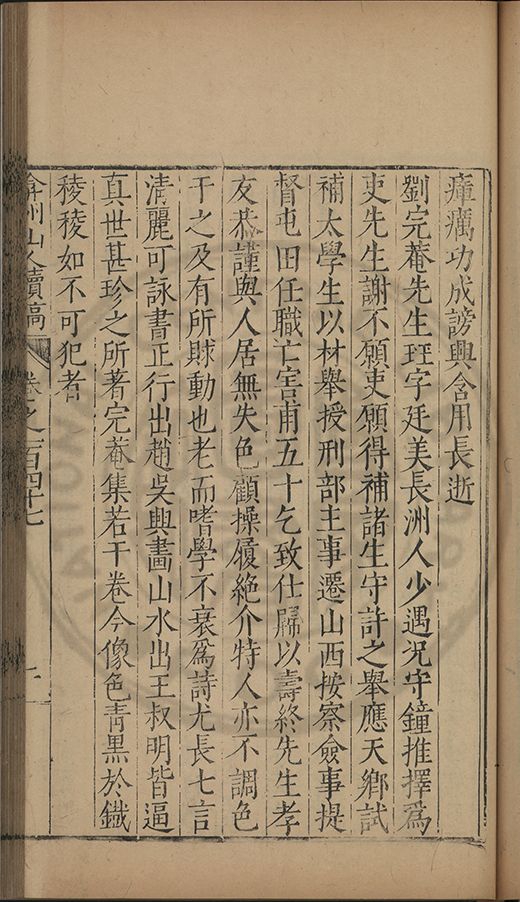 瘴癘功成謗興含用長逝
劉完菴先生珏字廷美長洲人少遇况守鐘推擇爲
吏先生謝不願吏願得補諸生守許之舉應天鄉試
補太學生以材舉授刑部主事遷山西按察僉事提
督屯田任職亡害甫五十乞致仕歸以壽終先生孝
友恭謹與人居無失色顧操履絶介特人亦不調色
干之及有所賕動也老而嗜學不衰爲詩尤長七言
清麗可詠書正行出趙吳興畫山水出王叔明皆逼
真世甚珍之所著完菴集若干卷今像色青黑於鐵
稜稜如不可犯者
弇州山人續稿 卷之一百四十七